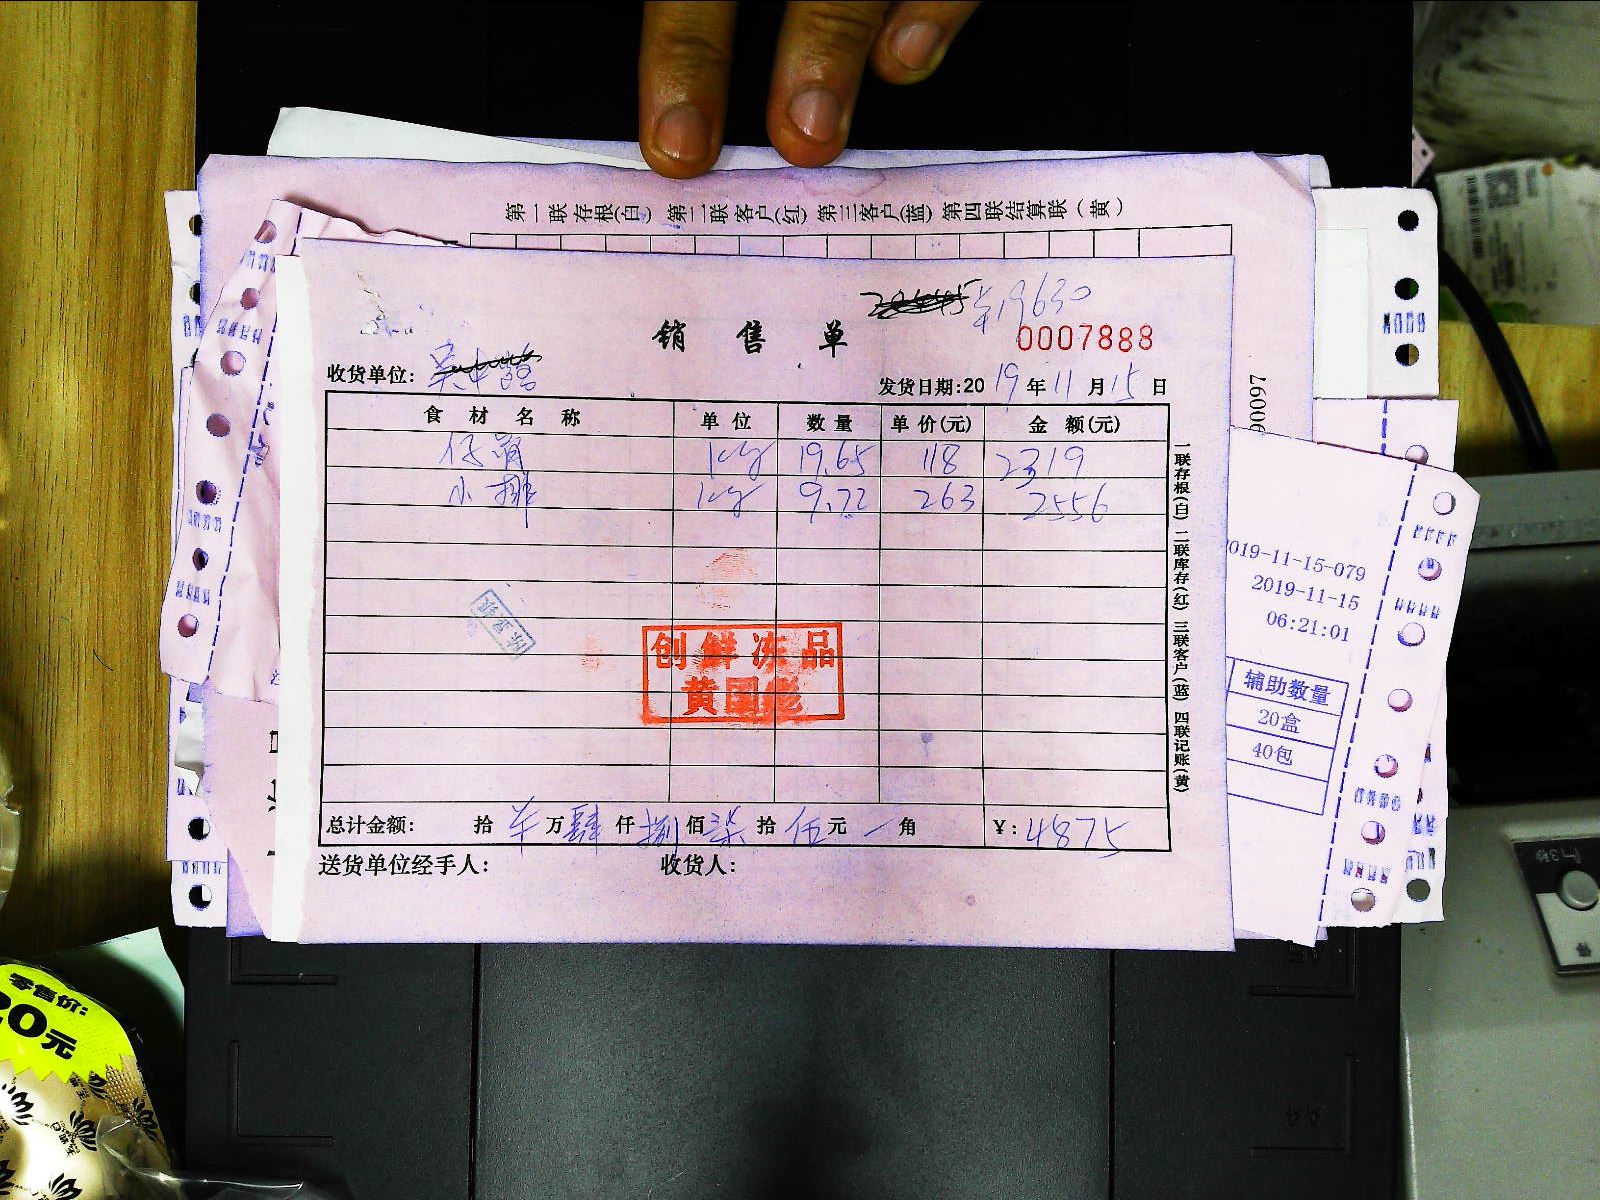 第一联存根(白) 第二联客户(红) 第三客户(蓝) 第四联结算联(黄)
19630
销售单
0007888
收货单位:
发货日期:2019年11月15日
食材名称 单位 数量 单价(元) 金额(元)
仔 kg 19.65 118 2319
小排 kg 9.72 263 2556
创鲜冻品
黄国
总计金额: 拾 万肆仟捌佰柒拾伍元 角 ¥:4875
送货单位经手人: 收货人:
一联存根(白) 二联库存(红) 三联客户(蓝) 四联记账(黄)
00097
019-11-15-079
2019-11-15
06:21:01
辅助数量
20盒
40包
零售价:
20元